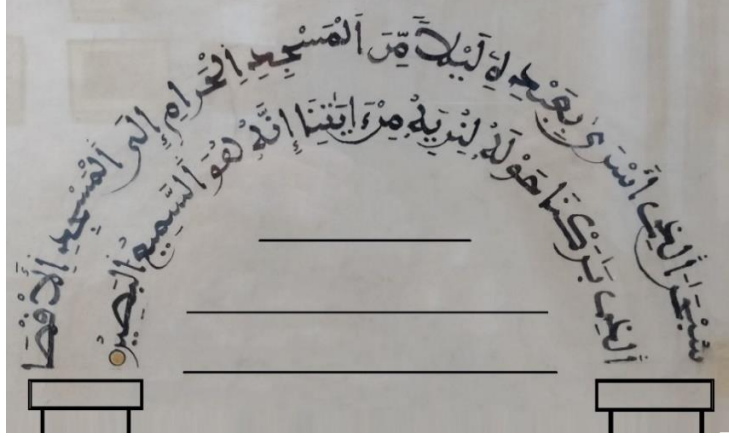 سُبْحَٰنَ ٱلذِےٓ أَسْرَىٰ بِعَبْدِهِۦ لَيْلاٗ مِّنَ ٱلْمَسْجِدِ ٱلْحَرَامِ إِلَى ٱلْمَسْجِدِ ٱلْأَقْصَا
ٱلذِے بَٰرَكْنَا حَوْلَهُۥ لِنُرِيَهُۥ مِنَ ايَٰتِنَآ إِنَّهُۥ هُوَ ٱلسَّمِيعُ ٱلْبَصِيرُ